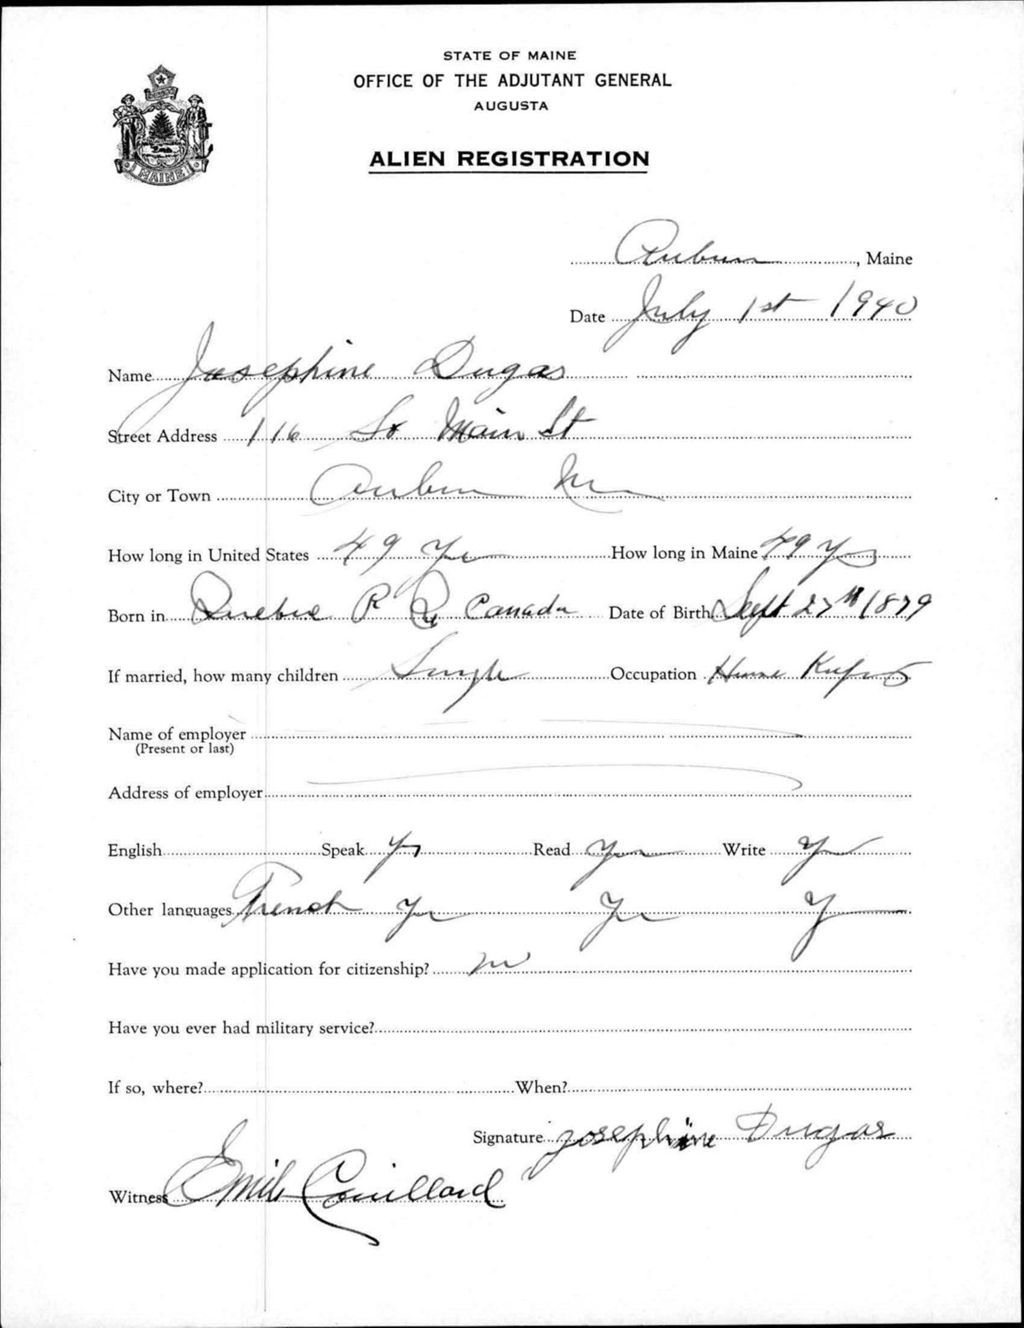 STATE OF MAINE
OFFICE OF THE ADJUTANT GENERAL
AUGUSTA
ALIEN REGISTRATION
MAINE
Auburn, Maine
Date July 1st 1940
Name Josephine Dugas
Street Address 116 So Main St
City or Town Auburn Me
How long in United States 49 Yr How long in Maine 49 Yrs
Born in Quebec P Q Canada Date of Birth Sept 27th 1879
If married, how many children Single Occupation House Keeper
Name of employer
(Present or last)
Address of employer
English Speak Yes Read Yes Write Yes
Other languages French Yes Yes Y
Have you made application for citizenship? no
Have you ever had military service?
If so, where? When?
Signature Josephine Dugas
Witness Emile Couillard